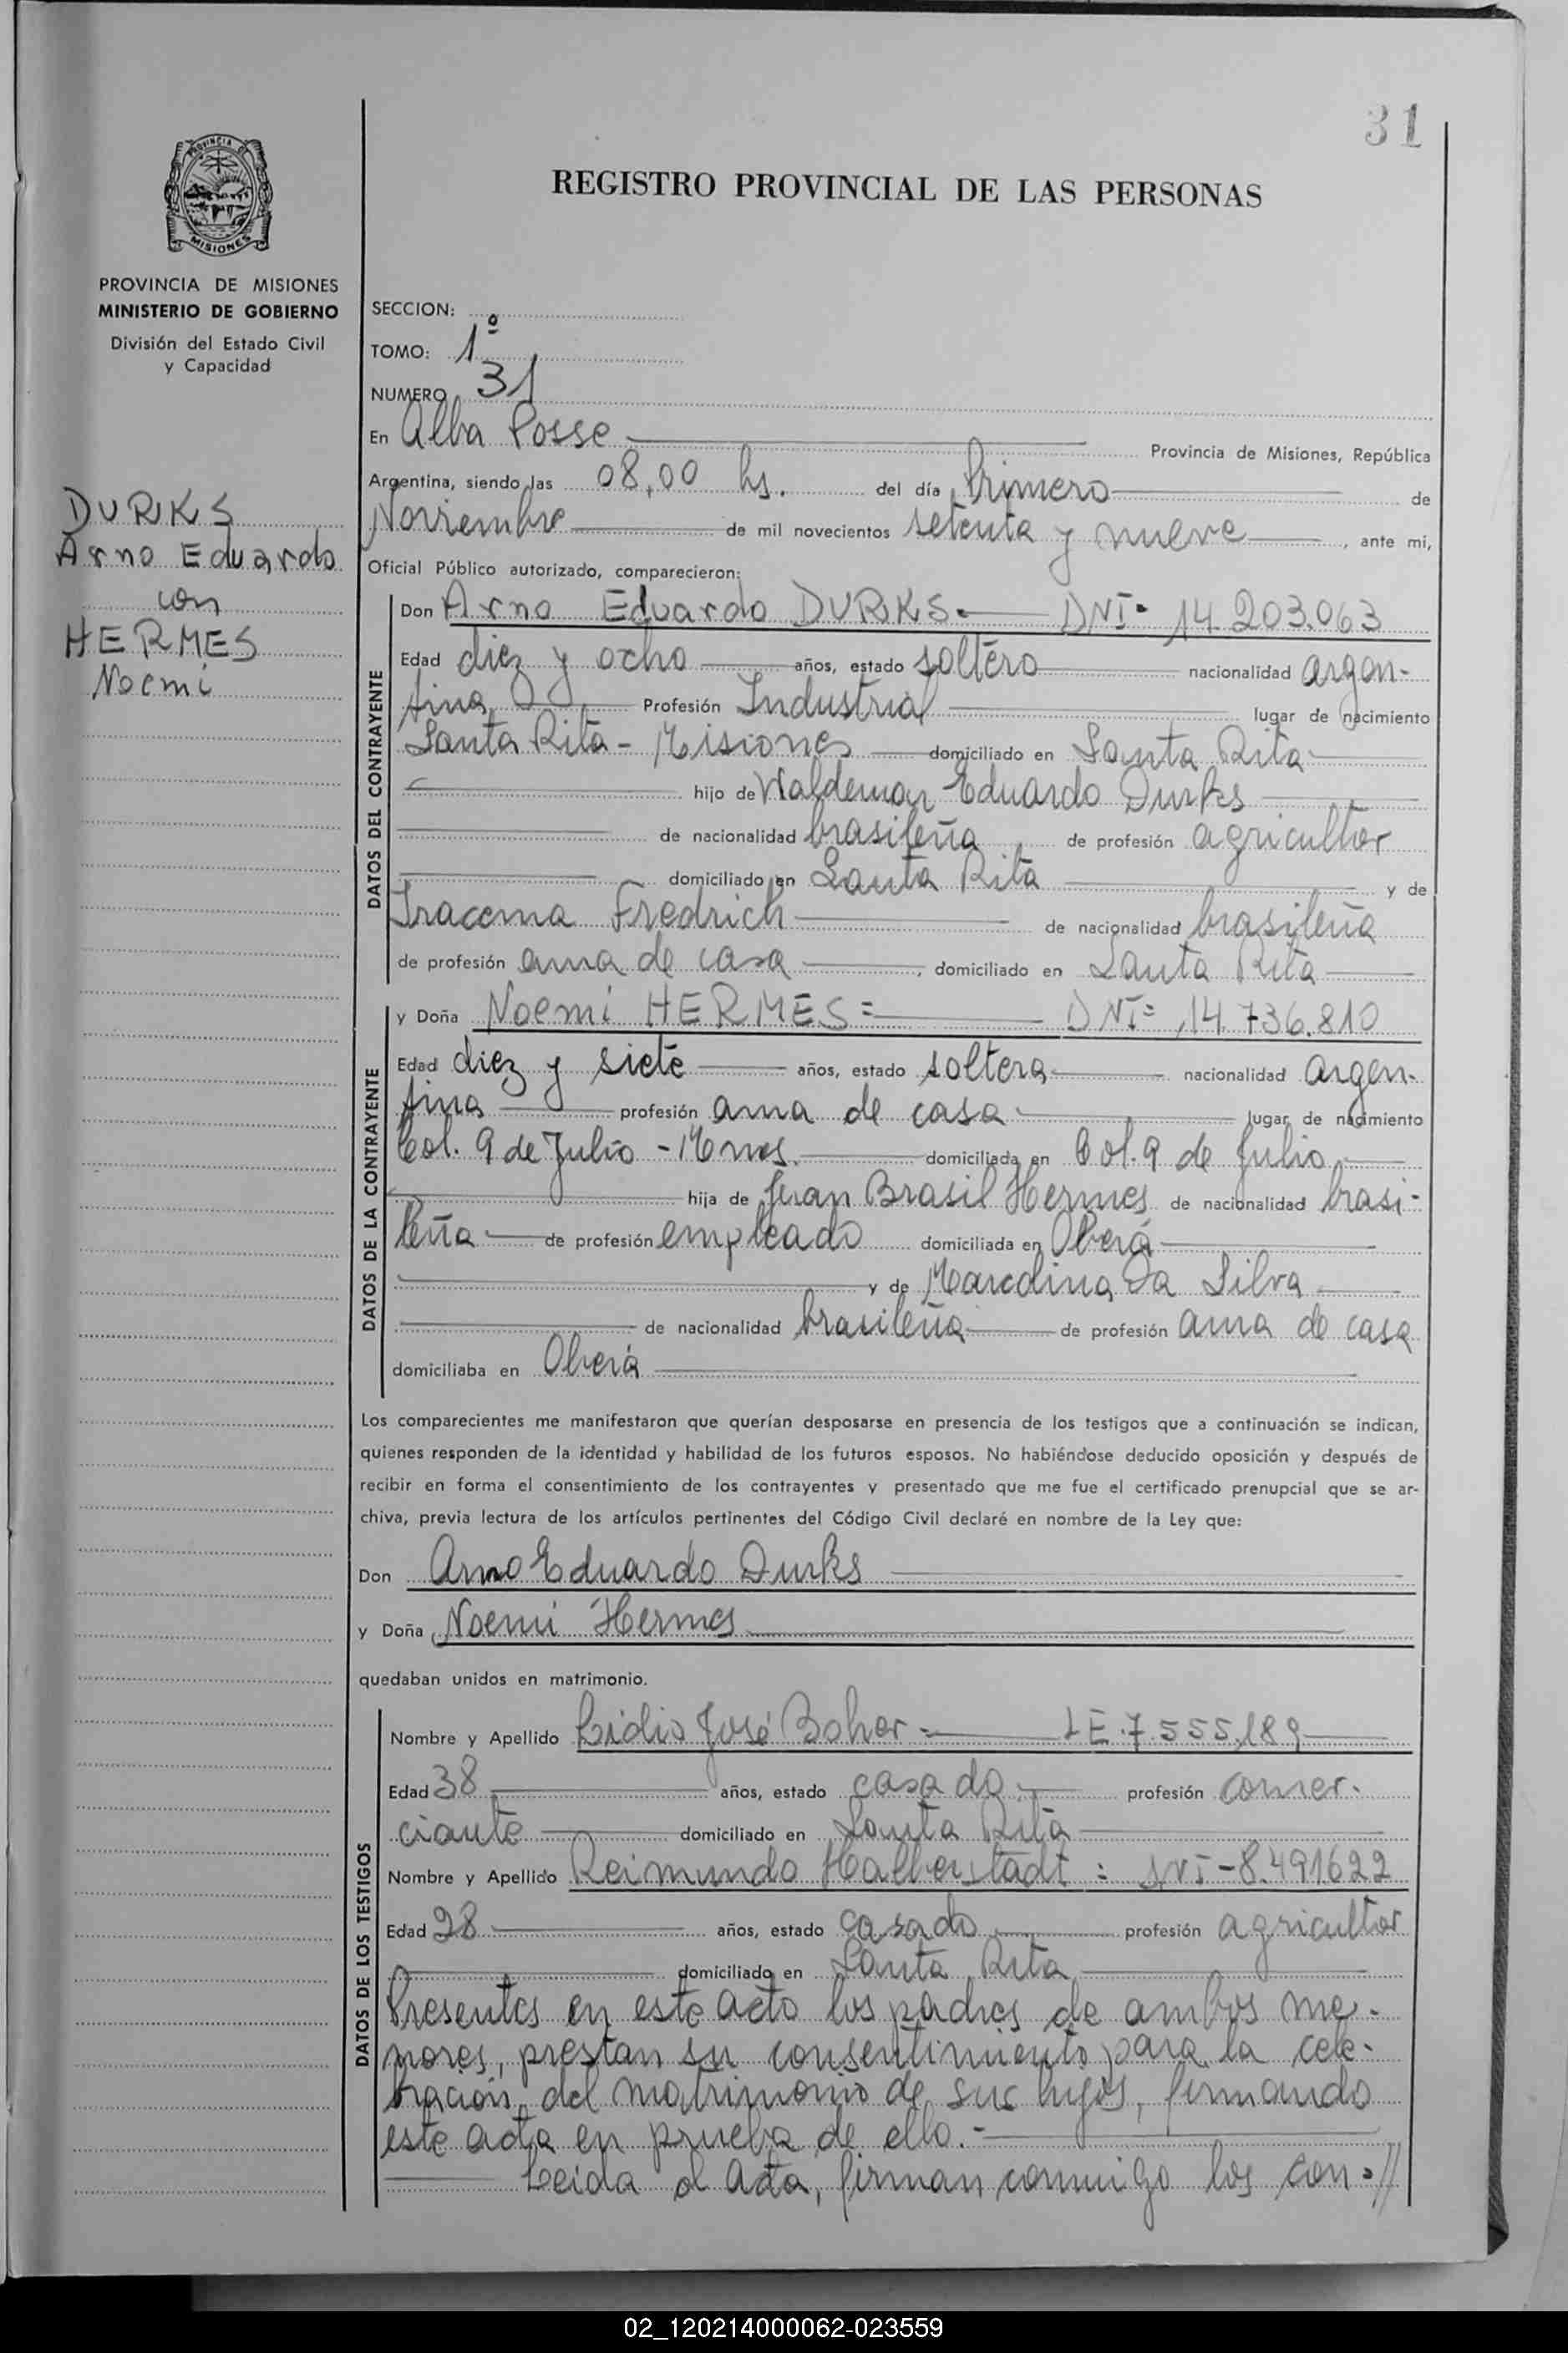 31
REGISTRO PROVINCIAL DE LAS PERSONAS
PROVINCIA DE
MISIONES
PROVINCIA DE MISIONES
MINISTERIO DE GOBIERNO
División del Estado Civil
y Capacidad
DURKS
Arno Eduardo
con
HERMES
Noemi
SECCION:
TOMO: 1º
NUMERO 31
En Alba Posse Provincia de Misiones, República
Argentina, siendo las 08,00 hs. del día Primero de
Noviembre de mil novecientos setenta y nueve, ante mi,
Oficial Público autorizado, comparecieron:
DATOS DEL CONTRAYENTE
Don Arno Eduardo DURKS.- DNI- 14.203.063
Edad diez y ocho años, estado soltero nacionalidad argen-
tina Profesión Industrial lugar de nacimiento
Santa Rita - Misiones domiciliado en Santa Rita
hijo de Waldemar Eduardo Durks
de nacionalidad brasileña de profesión agricultor
domiciliado en Santa Rita y de
Iracema Fredrich de nacionalidad brasileña
de profesión ama de casa, domiciliado en Santa Rita
DATOS DE LA CONTRAYENTE
y Doña Noemi HERMES= DNI= 14.736.810
Edad diez y siete años, estado soltera nacionalidad argen-
tina profesión ama de casa lugar de nacimiento
Col. 9 de Julio - Mnes. domiciliada en Col. 9 de Julio
hija de Juan Brasil Hermes de nacionalidad brasi-
leña de profesión empleado domiciliada en Oberá
y de Marcolina Da Silva
de nacionalidad brasileña de profesión ama de casa
domiciliaba en Oberá
Los comparecientes me manifestaron que querían desposarse en presencia de los testigos que a continuación se indican,
quienes responden de la identidad y habilidad de los futuros esposos. No habiéndose deducido oposición y después de
recibir en forma el consentimiento de los contrayentes y presentado que me fue el certificado prenupcial que se ar-
chiva, previa lectura de los artículos pertinentes del Código Civil declaré en nombre de la Ley que:
Don Arno Eduardo Durks
y Doña Noemi Hermes
quedaban unidos en matrimonio.
DATOS DE LOS TESTIGOS
Nombre y Apellido Lidio José Boher - LE.7.555.189
Edad 38 años, estado casado profesión comer-
ciante domiciliado en Santa Rita
Nombre y Apellido Reimundo Halberstadt = DNI-8.491622
Edad 28 años, estado casado profesión agricultor
domiciliado en Santa Rita
Presentes en este acto los padres de ambos me-
nores, prestan su consentimiento para la cele-
bración del matrimonio de sus hijos, firmando
este acta en prueba de ello.-
Leida el Acta, firman conmigo los con-//
02_120214000062-023559